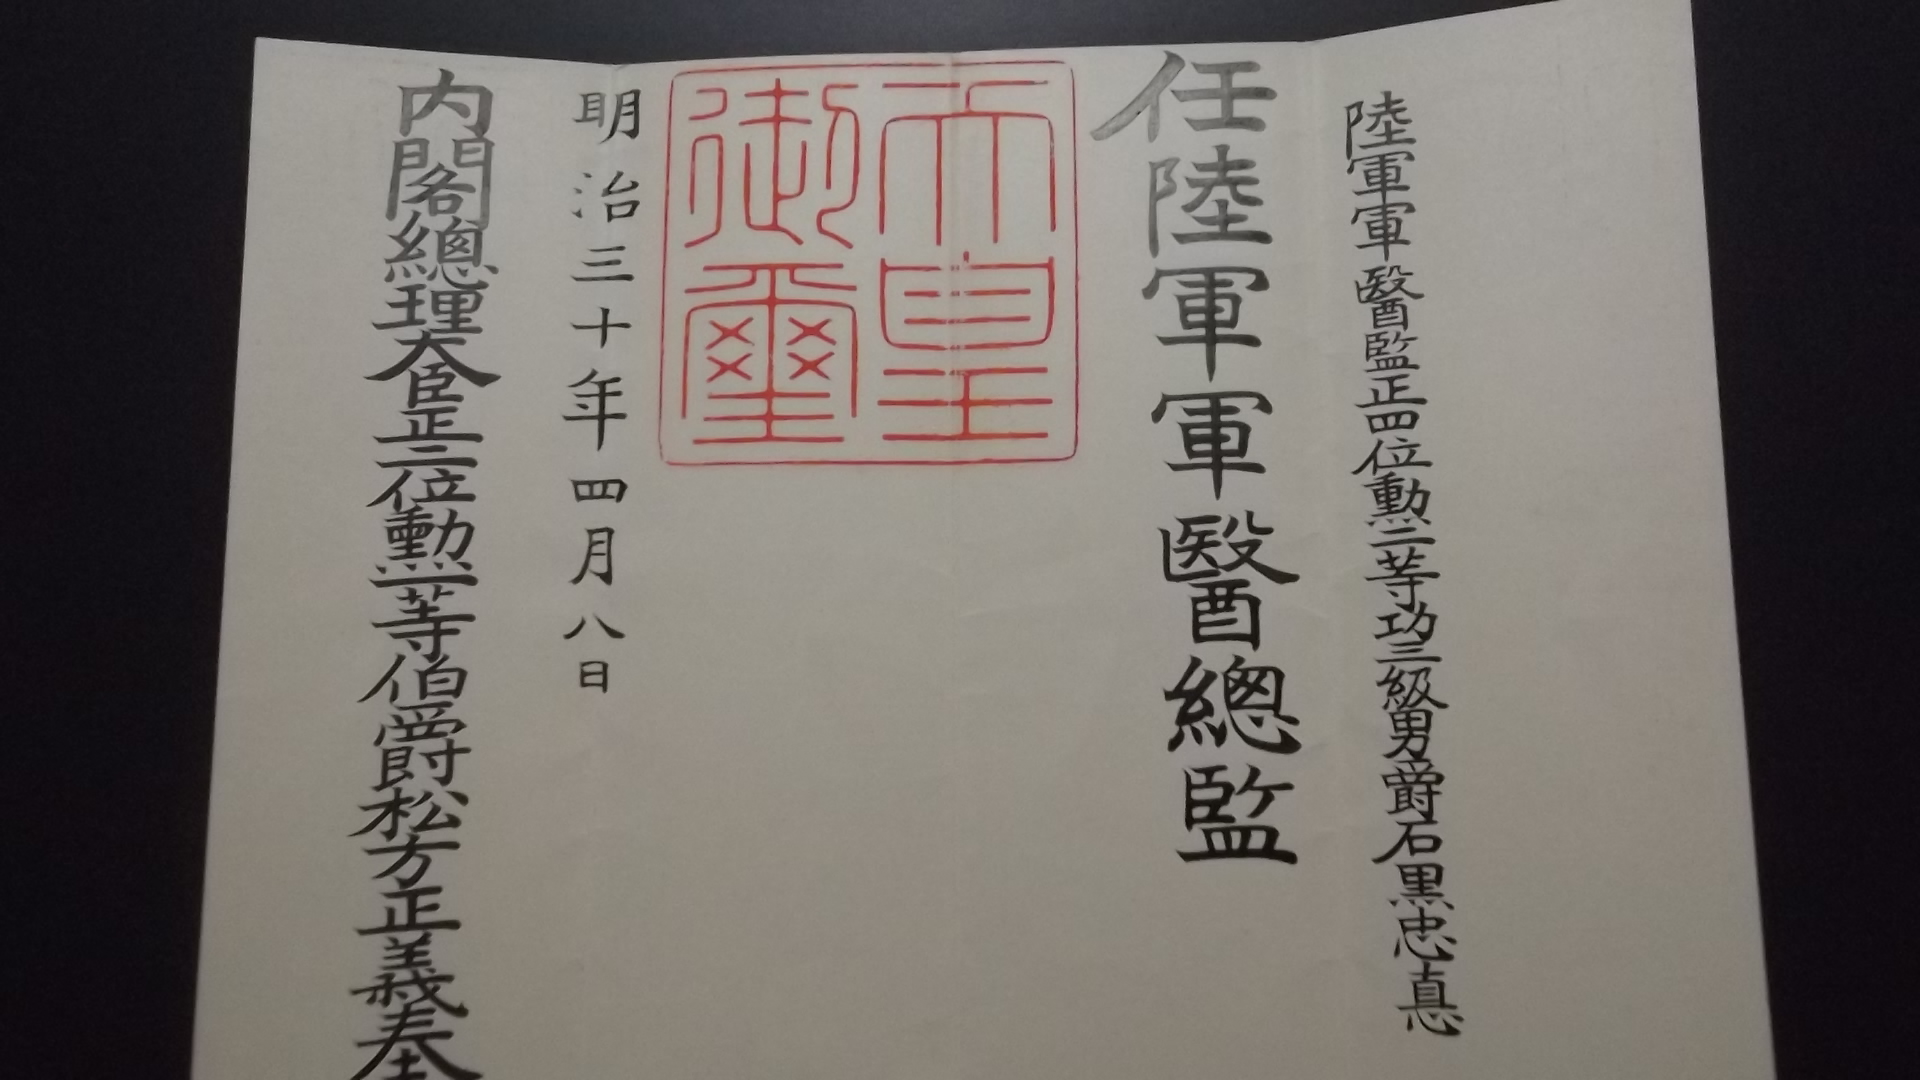 陸軍軍醫監正四位勳二等功三級男爵石黒忠悳
任陸軍軍醫總監
天皇
御璽
明治三十年四月八日
内閣總理大臣正二位勳一等伯爵松方正義奉